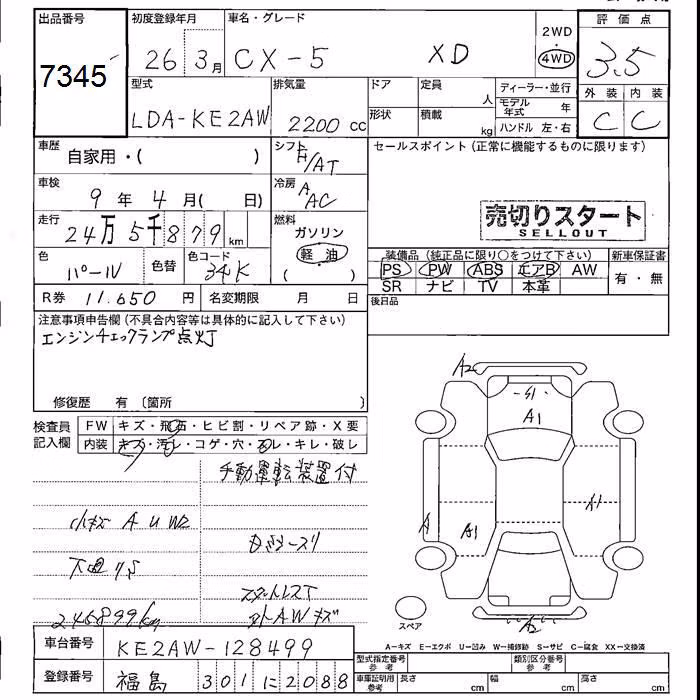 出品番号 初度登録年月 車名・グレード 2WD 評価点
7345 26 3月 CX-5 XD 4WD 3.5
型式 排気量 ドア 定員 人 ディーラー・並行 外装 内装
LDA-KE2AW 2200cc 形状 積載 kg モデル年式 年 C C
ハンドル 左・右
車歴 自家用・( ) シフト H/AT セールスポイント(正常に機能するものに限ります)
車検 9年 4月( 日) 冷房 A AC
売切りスタート
SELLOUT
走行 24万5千879km 燃料 ガソリン
軽油
( )
装備品(純正品に限り○をつけて下さい) 新車保証書
色 パール 色替 色コード 34K PS PW ABS エアB AW 有・無
SR ナビ TV 本革
R券 11,650円 名変期限 月 日 後日品
注意事項申告欄(不具合内容等は具体的に記入して下さい)
エンジンチェックランプ点灯
修復歴 有(箇所 )
検査員記入欄 FW キズ・飛石・ヒビ割・リペア跡・X要
内装 キズ・汚レ・コゲ・穴・スレ・キレ・破レ
手動運転装置付
小キズ A U W2
下廻りS
246899km
A2
S1
A1
A1
A
A1
A2
スペア
A-キズ E-エクボ U-凹み W-補修跡 S-サビ C-腐食 XX-交換済
車台番号 KE2AW-128499
型式指定番号 参考 類別区分番号 参考
登録番号 福島 301に2088
車庫証明用 参考 長さ cm 幅 cm 高さ cm